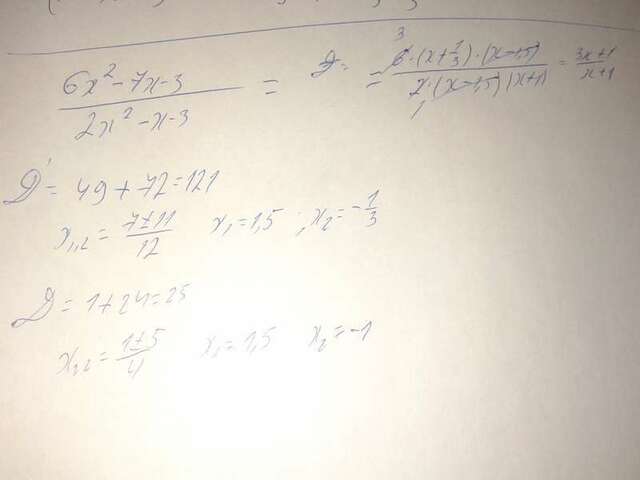 (6x² - 7x - 3)/(2x² - x - 3) = D = = (6·(x + 1/3)·(x - 1,5))/(2·(x - 1,5)(x + 1)) = (3x + 1)/(x + 1)
3
D = 49 + 72 = 121
x₁,₂ = (7 ± 11)/12 x₁ = 1,5 ; x₂ = -1/3
D = 1 + 24 = 25
x₁,₂ = (1 ± 5)/4 x₁ = 1,5 x₂ = -1